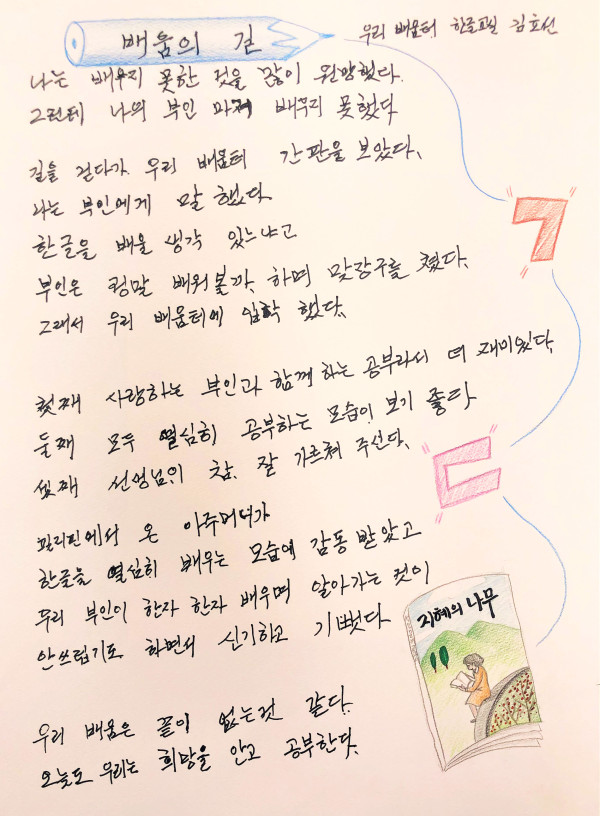 배움의 길
우리 배움터 한글교실 김호선
나는 배우지 못한 것을 많이 원망했다.
그런데 나의 부인 마저 배우지 못했다
길을 걷다가 우리 배움터 간판을 보았다.
나는 부인에게 말 했다.
한글을 배울 생각 있느냐고
부인은 정말 배워볼까. 하며 맞장구를 쳤다.
그래서 우리 배움터에 입학 했다.
첫째 사랑하는 부인과 함께 하는 공부라서 더 재미있다.
둘째 모두 열심히 공부하는 모습이 보기 좋다
셋째 선생님이 참. 잘 가르쳐 주신다.
필리핀에서 온 아주머니가
한글을 열심히 배우는 모습에 감동 받았고
우리 부인이 한자 한자 배우며 알아가는 것이
안쓰럽기도 하면서 신기하고 기뻤다
우리 배움은 끝이 없는것 같다.
오늘도 우리는 희망을 안고 공부한다.
ㄱ
ㄷ
지혜의 나무